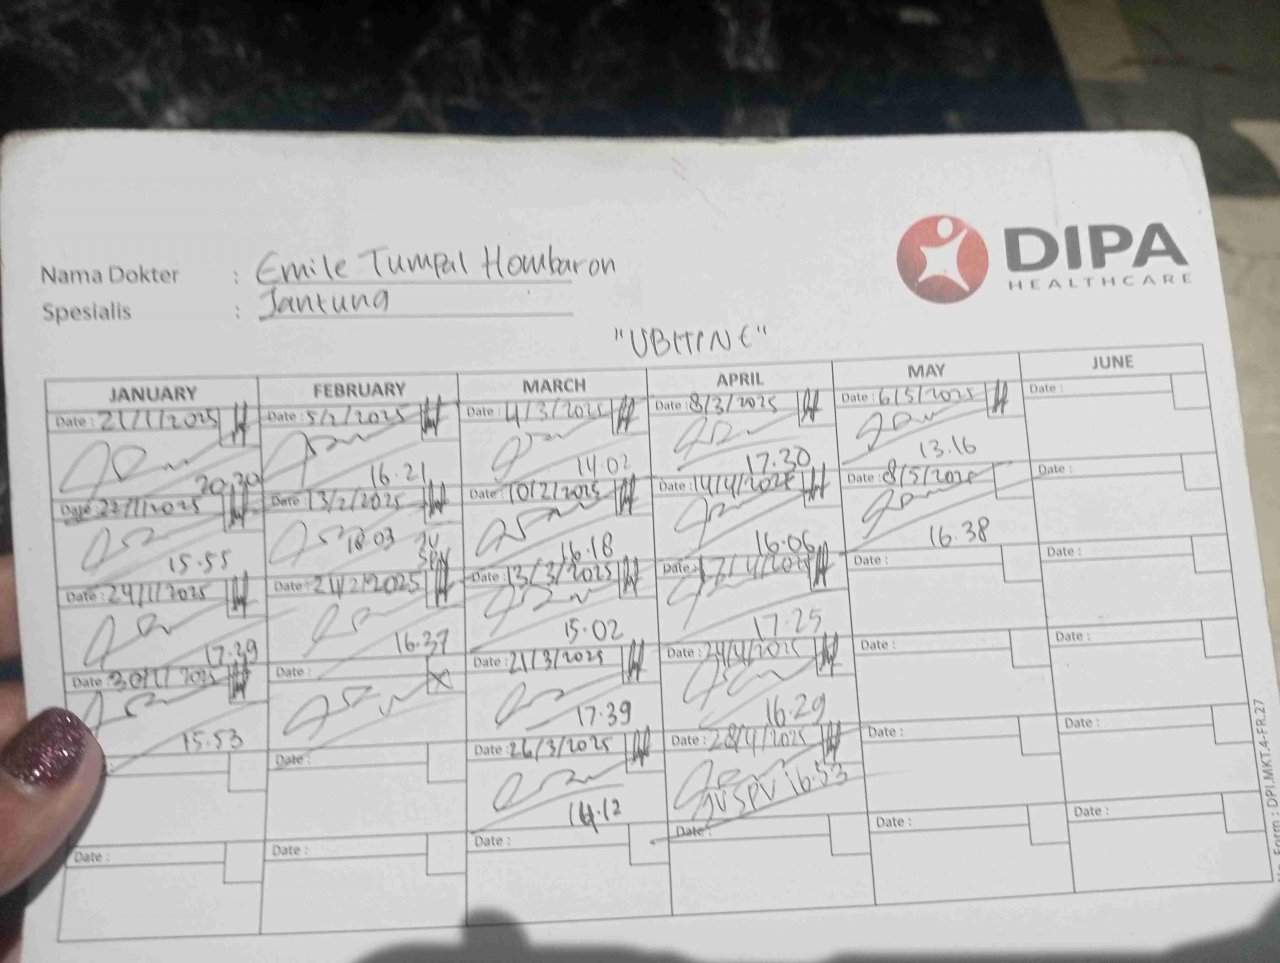 DIPA
HEALTHCARE
Nama Dokter : Emile Tumpal Hombaron
Spesialis : Jantung
"UBITINE"
JANUARY FEBRUARY MARCH APRIL MAY JUNE
Date : 21/1/2025 Date : 5/2/2025 Date : 4/3/2025 Date : 8/3/2025 Date : 6/5/2025 Date :
20.20 16.21 14.02 17.30 13.16
Date 22/1/2025 Date : 13/2/2025 Date : 10/2/2025 Date : 14/4/2025 Date : 8/5/2025 Date :
15.55 18.03 JV SPV 16.18 16.06 16.38
Date : 29/1/2025 Date : 21/2/2025 Date : 13/3/2025 Date : 17/4/2025 Date : Date :
17.39 16.37 15.02 17.25
Date : 30/1/2025 Date : Date : 21/3/2025 Date : 24/4/2025 Date : Date :
15.53 17.39 16.29
Date : Date : 26/3/2025 Date : 28/4/2025 Date : Date :
JV SPV 16.53
Date : Date : Date : Date : Date : Date :
Form : DPI.MKT.4-FR.27